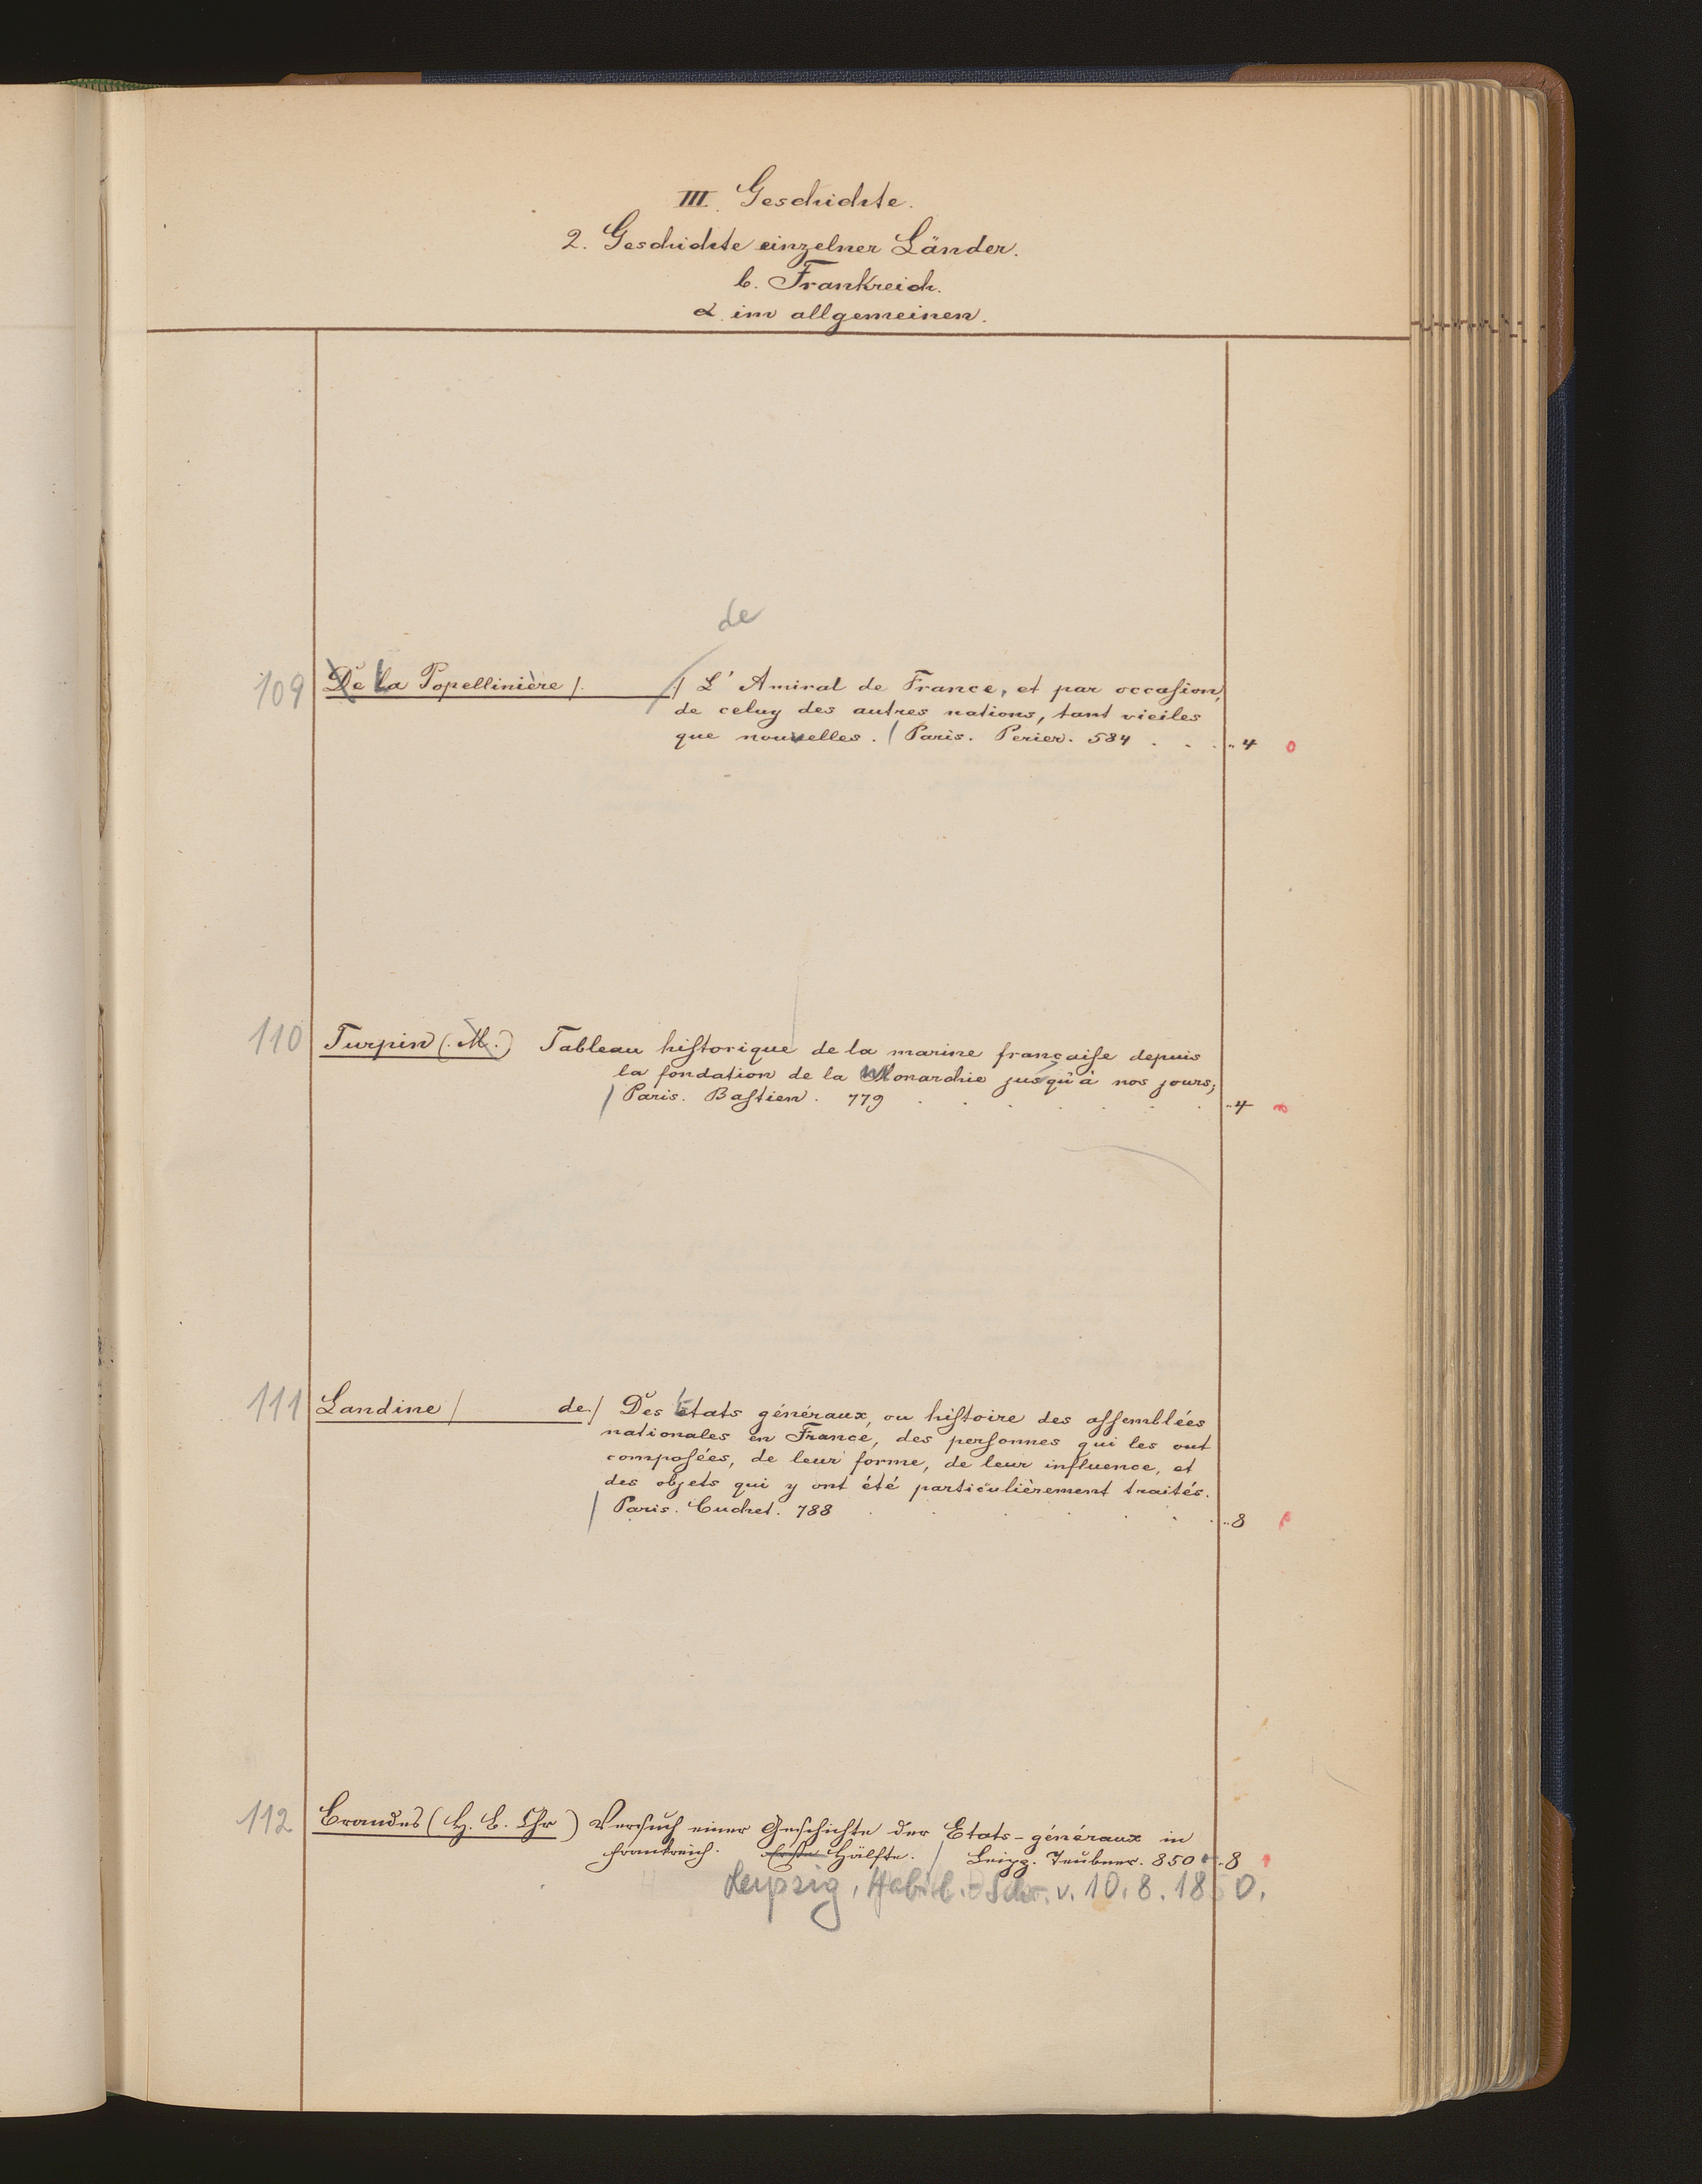 III. Geschichte.
2. Geschichte einzelner Länder.
b. Frankreich.
α im allgemeinen.
de
109 De la Popellinière /. /) L' Amiral de France, et par occasion,
de celuy des autres nations, tant vieiles
que nouvelles. / Paris. Perier. 584 . . . ..4 0
110 Turpin (. M.) Tableau historique de la marine française depuis
la fondation de la Monarchie jusqu'à nos jours;
/ Paris. Bastien. 779 . . . . . . . ..4
111 Landine / de./ Des états généraux, ou histoire des assemblées
nationales en France, des personnes qui les ont
composées, de leur forme, de leur influence, et
des objets qui y ont été particulièrement traités.
/ Paris. Cuchet. 788 . . . . . . ..8
112 Brandes (H. B. Chr) Versuch einer Geschichte der Etats-généraux in
Frankreich. Erste Hälfte. / Leipz. Teubner. 850 ..8
Leipzig, Habil.-Schr. v. 10.8.1850.